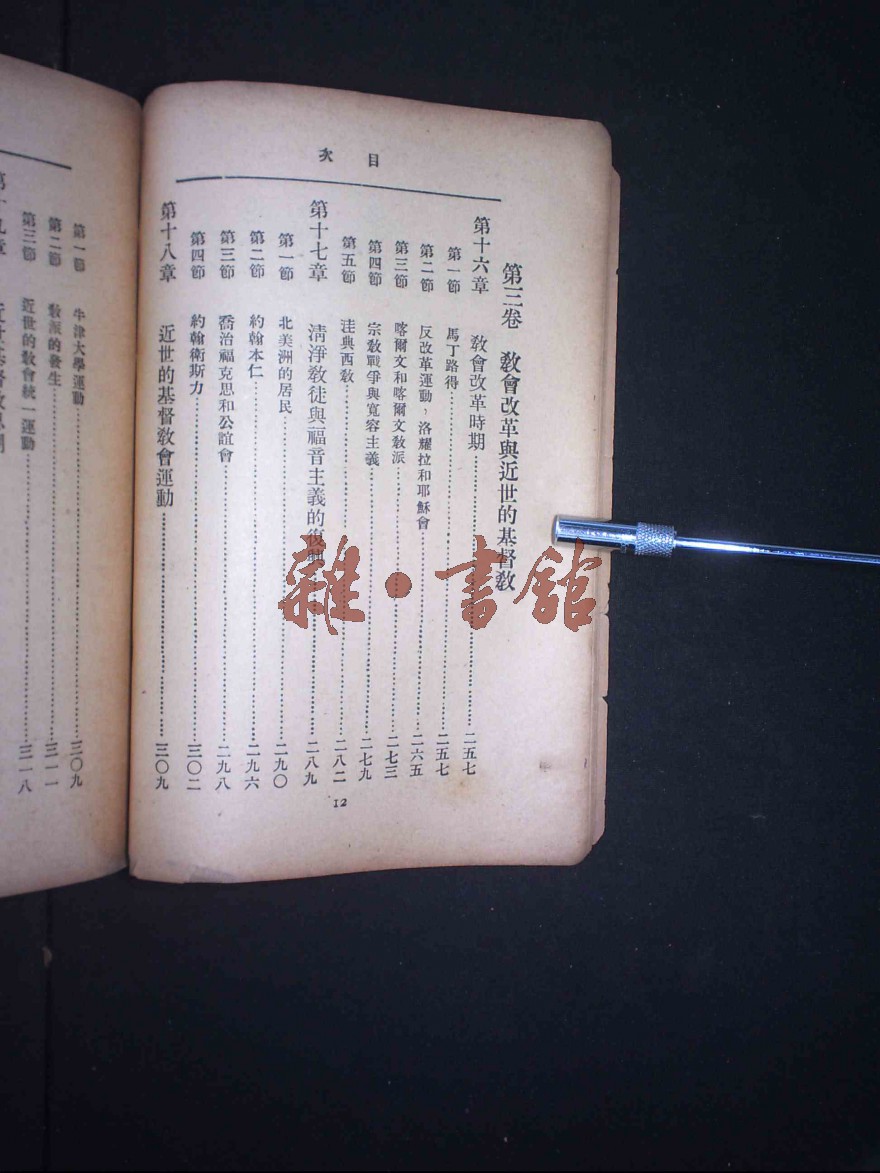 目次
第三卷 教會改革與近世的基督教
第十六章 教會改革時期……二五七
第一節 馬丁路得……二五七
第二節 反改革運動，洛耀拉和耶穌會……二六五
第三節 喀爾文和喀爾文教派……二七三
第四節 宗教戰爭與寬容主義……二七九
第五節 洼典西教……二八二
第十七章 清淨教徒與福音主義的復興……二八九
第一節 北美洲的居民……二九〇
第二節 約翰本仁……二九六
第三節 喬治福克思和公誼會……二九八
第四節 約翰衛斯力……三〇二
第十八章 近世的基督教會運動……三〇九
12
第一節 牛津大學運動……三〇九
第二節 教派的發生……三一一
第三節 近世的教會統一運動……三一八
第十九章
雜·書館